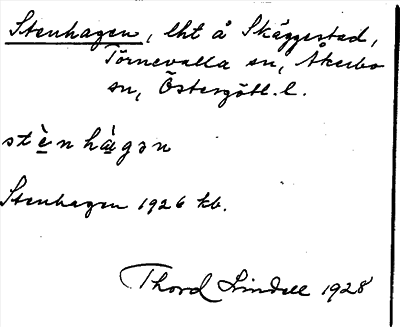 Stenhagen, lht å Skäggestad,
Törnevalla sn, Åkerbo
sn, Östergötl. l.
stènhàgən
Stenhagen 1926 kb.
Thord Lindell 1928